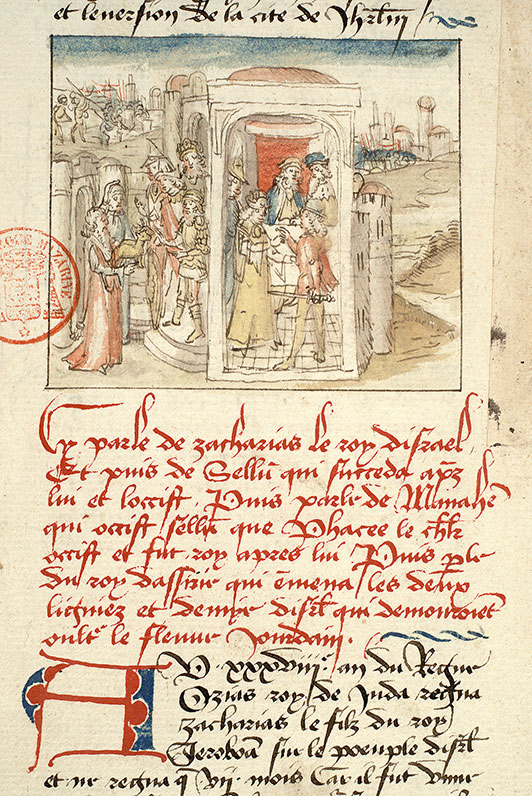 et leuersion de la cite de Jhrlm
Cy parle de zacharias le roy disrael
Et puis de Sellu qui succeda apz
lui et loccist Puis parle de Manahe
qui occist sellu que Phacee le chlr
occist et fut roy apres lui Puis ple
du roy dassirie qui emena les deux
ligniez et demye disrl qui demouroiet
oult le fleuue Jourdain.
AU xxxviii an du Regne
Ozias roy de Juda regna
zacharias le filz du roy
Jeroboa sur le poeuple disrl
et ne regna q vii mois Car il fut